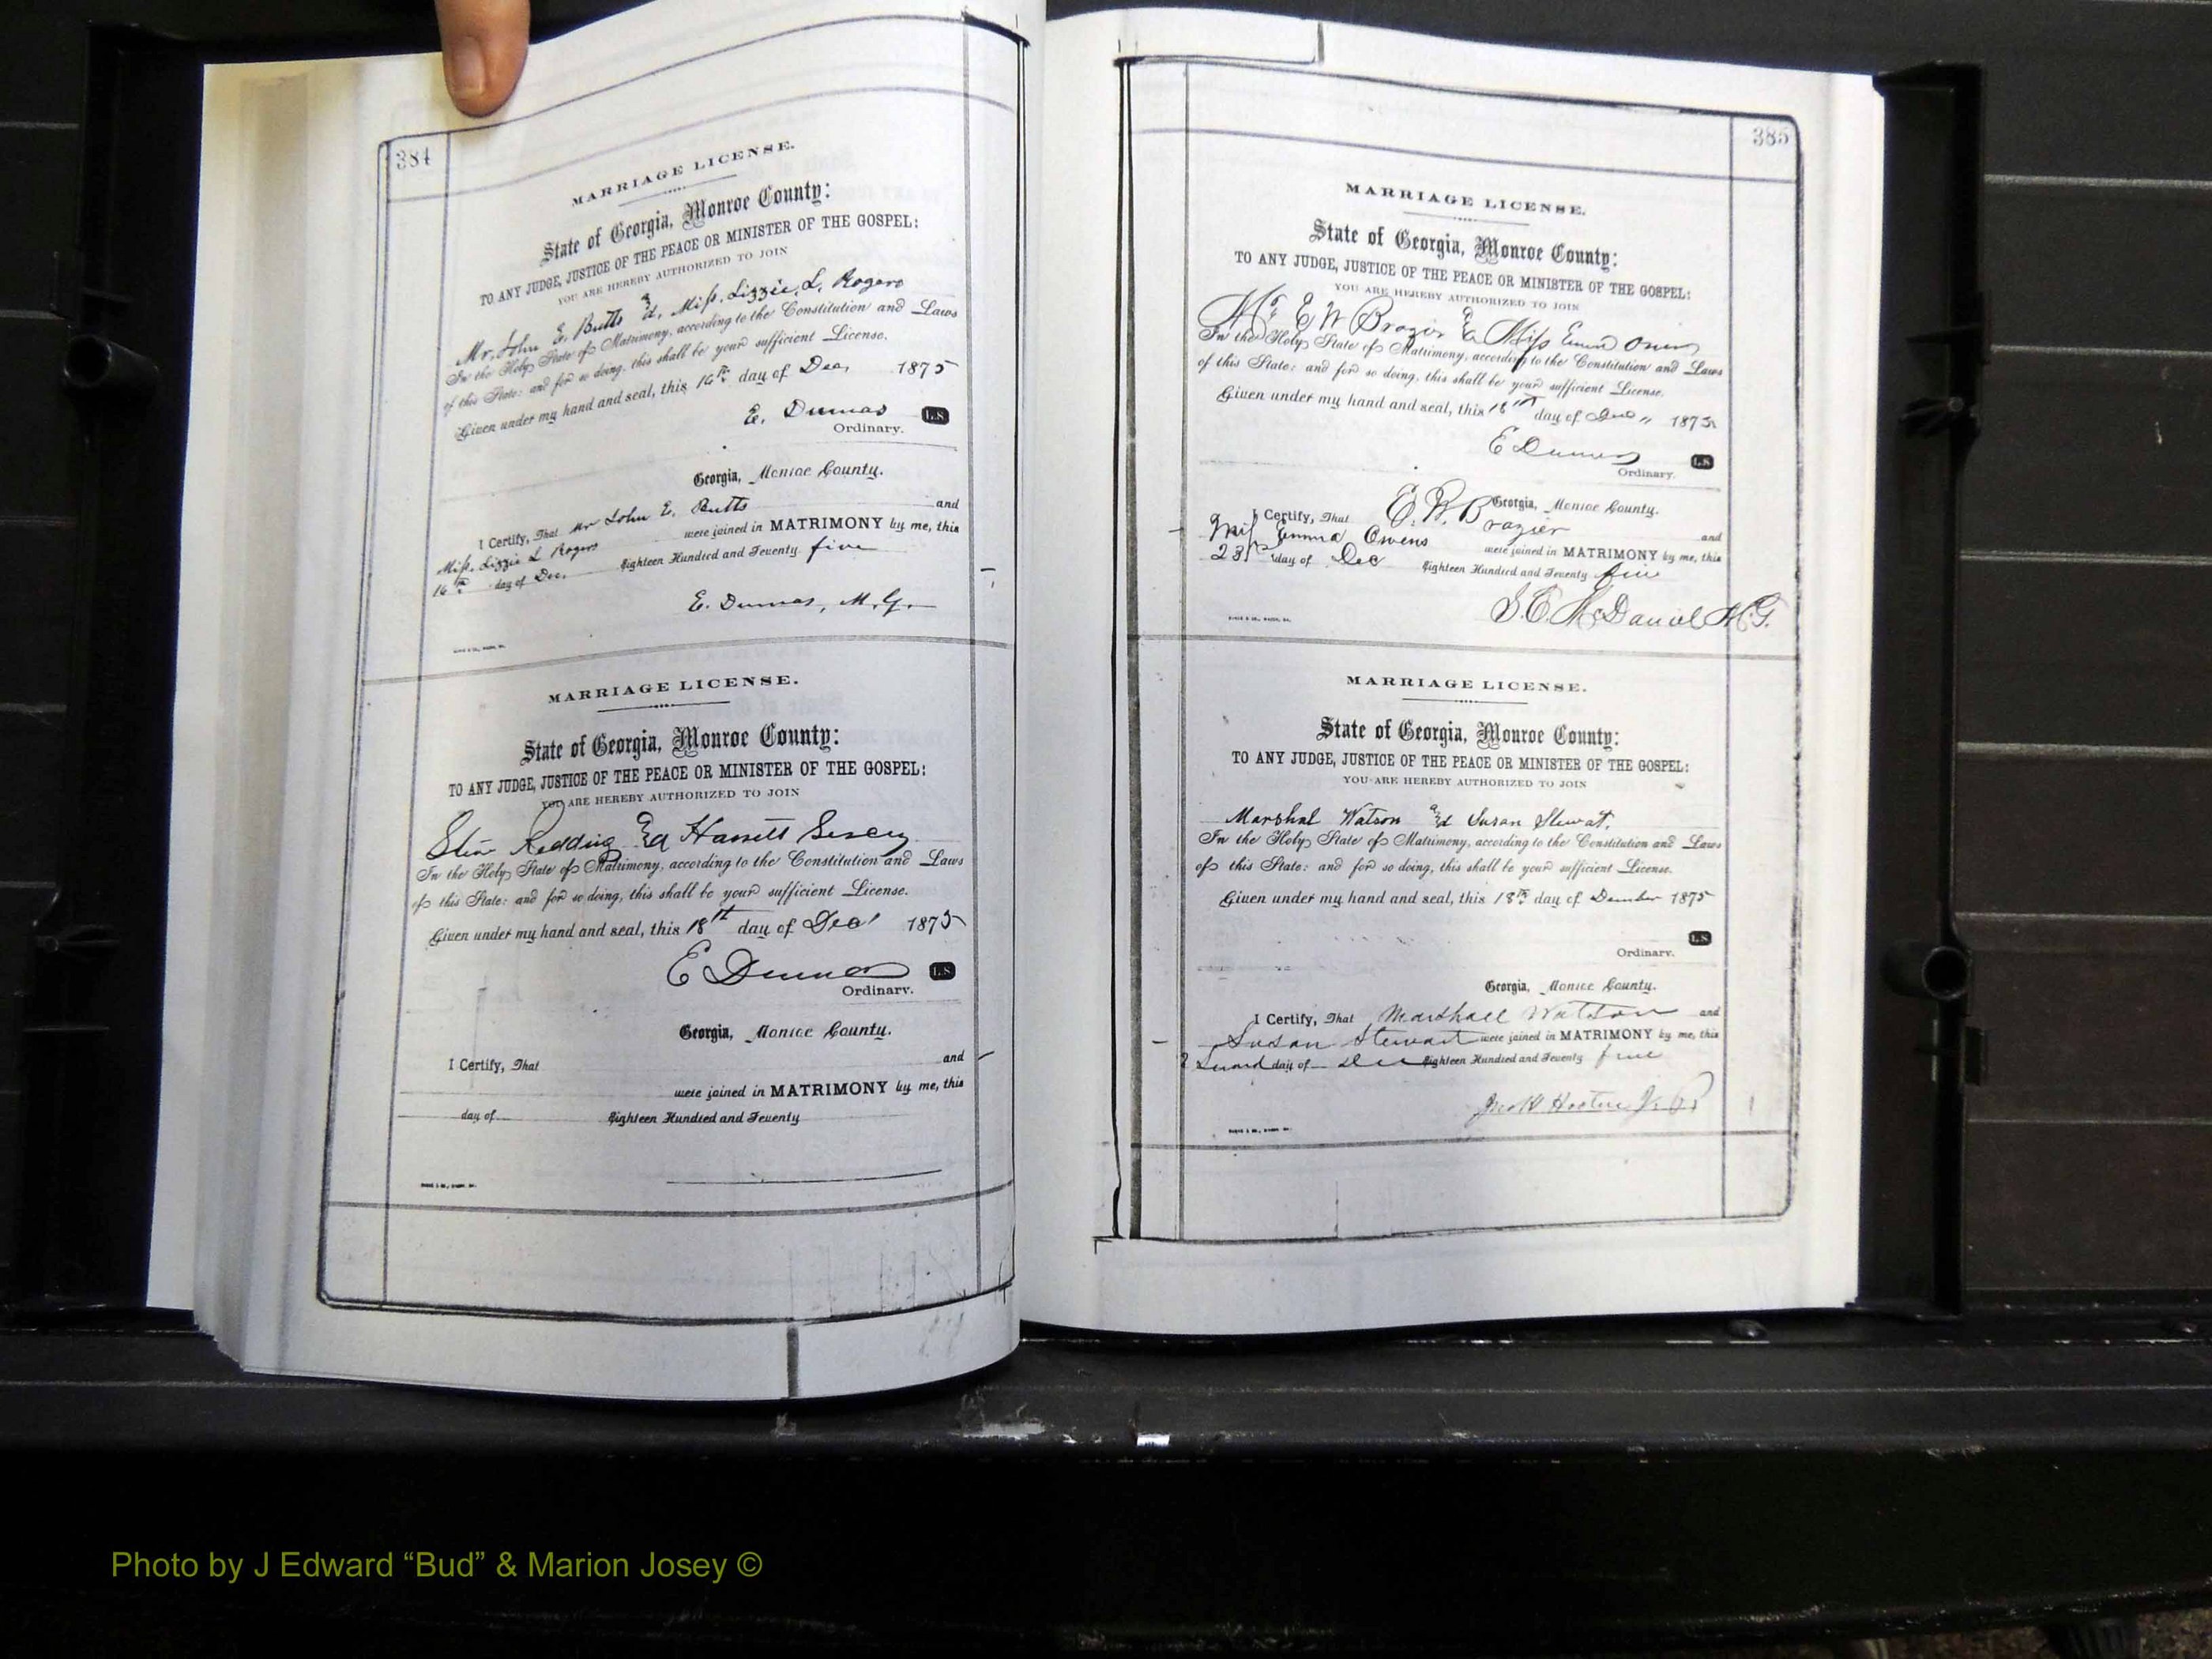 384
MARRIAGE LICENSE.
State of Georgia, Monroe County:
TO ANY JUDGE, JUSTICE OF THE PEACE OR MINISTER OF THE GOSPEL:
YOU ARE HEREBY AUTHORIZED TO JOIN
Mr. John E. Butts & Miss. Lizzie L. Rogers
In the Holy State of Matrimony, according to the Constitution and Laws
of this State: and for so doing, this shall be your sufficient License.
Given under my hand and seal, this 16th day of Dec, 1875
E. Dumas L.S
Ordinary.
Georgia, Monroe County.
I Certify, That Mr John E. Butts and
Miss. Lizzie L Rogers were joined in MATRIMONY by me, this
16th day of Dec. Eighteen Hundred and Seventy five
E. Dumas, M.G.
MARRIAGE LICENSE.
State of Georgia, Monroe County:
TO ANY JUDGE, JUSTICE OF THE PEACE OR MINISTER OF THE GOSPEL:
YOU ARE HEREBY AUTHORIZED TO JOIN
Redding & Harrett
In the Holy State of Matrimony, according to the Constitution and Laws
of this State: and for so doing, this shall be your sufficient License.
Given under my hand and seal, this 18th day of Dec 1875
E Dumas L.S
Ordinary.
Georgia, Monroe County.
I Certify, That and
were joined in MATRIMONY by me, this
day of Eighteen Hundred and Seventy
385
MARRIAGE LICENSE.
State of Georgia, Monroe County:
TO ANY JUDGE, JUSTICE OF THE PEACE OR MINISTER OF THE GOSPEL:
YOU ARE HEREBY AUTHORIZED TO JOIN
Mr E W Brazier & Miss Emma
In the Holy State of Matrimony, according to the Constitution and Laws
of this State: and for so doing, this shall be your sufficient License.
Given under my hand and seal, this 18th day of Dec 1875
E Dumas L.S
Ordinary.
Georgia, Monroe County.
I Certify, That E. W. Brazier and
Miss Emma Owens were joined in MATRIMONY by me, this
23rd day of Dec Eighteen Hundred and Seventy five
S. E. McDaniel M.G.
MARRIAGE LICENSE.
State of Georgia, Monroe County:
TO ANY JUDGE, JUSTICE OF THE PEACE OR MINISTER OF THE GOSPEL:
YOU ARE HEREBY AUTHORIZED TO JOIN
Marshal Watson & Susan Stewat.
In the Holy State of Matrimony, according to the Constitution and Laws
of this State: and for so doing, this shall be your sufficient License.
Given under my hand and seal, this 18th day of Dember 1875
L.S
Ordinary.
Georgia, Monroe County.
I Certify, That Marshall Watson and
Susan Stewart were joined in MATRIMONY by me, this
day of Dec Eighteen Hundred and Seventy five
Photo by J Edward “Bud” & Marion Josey ©